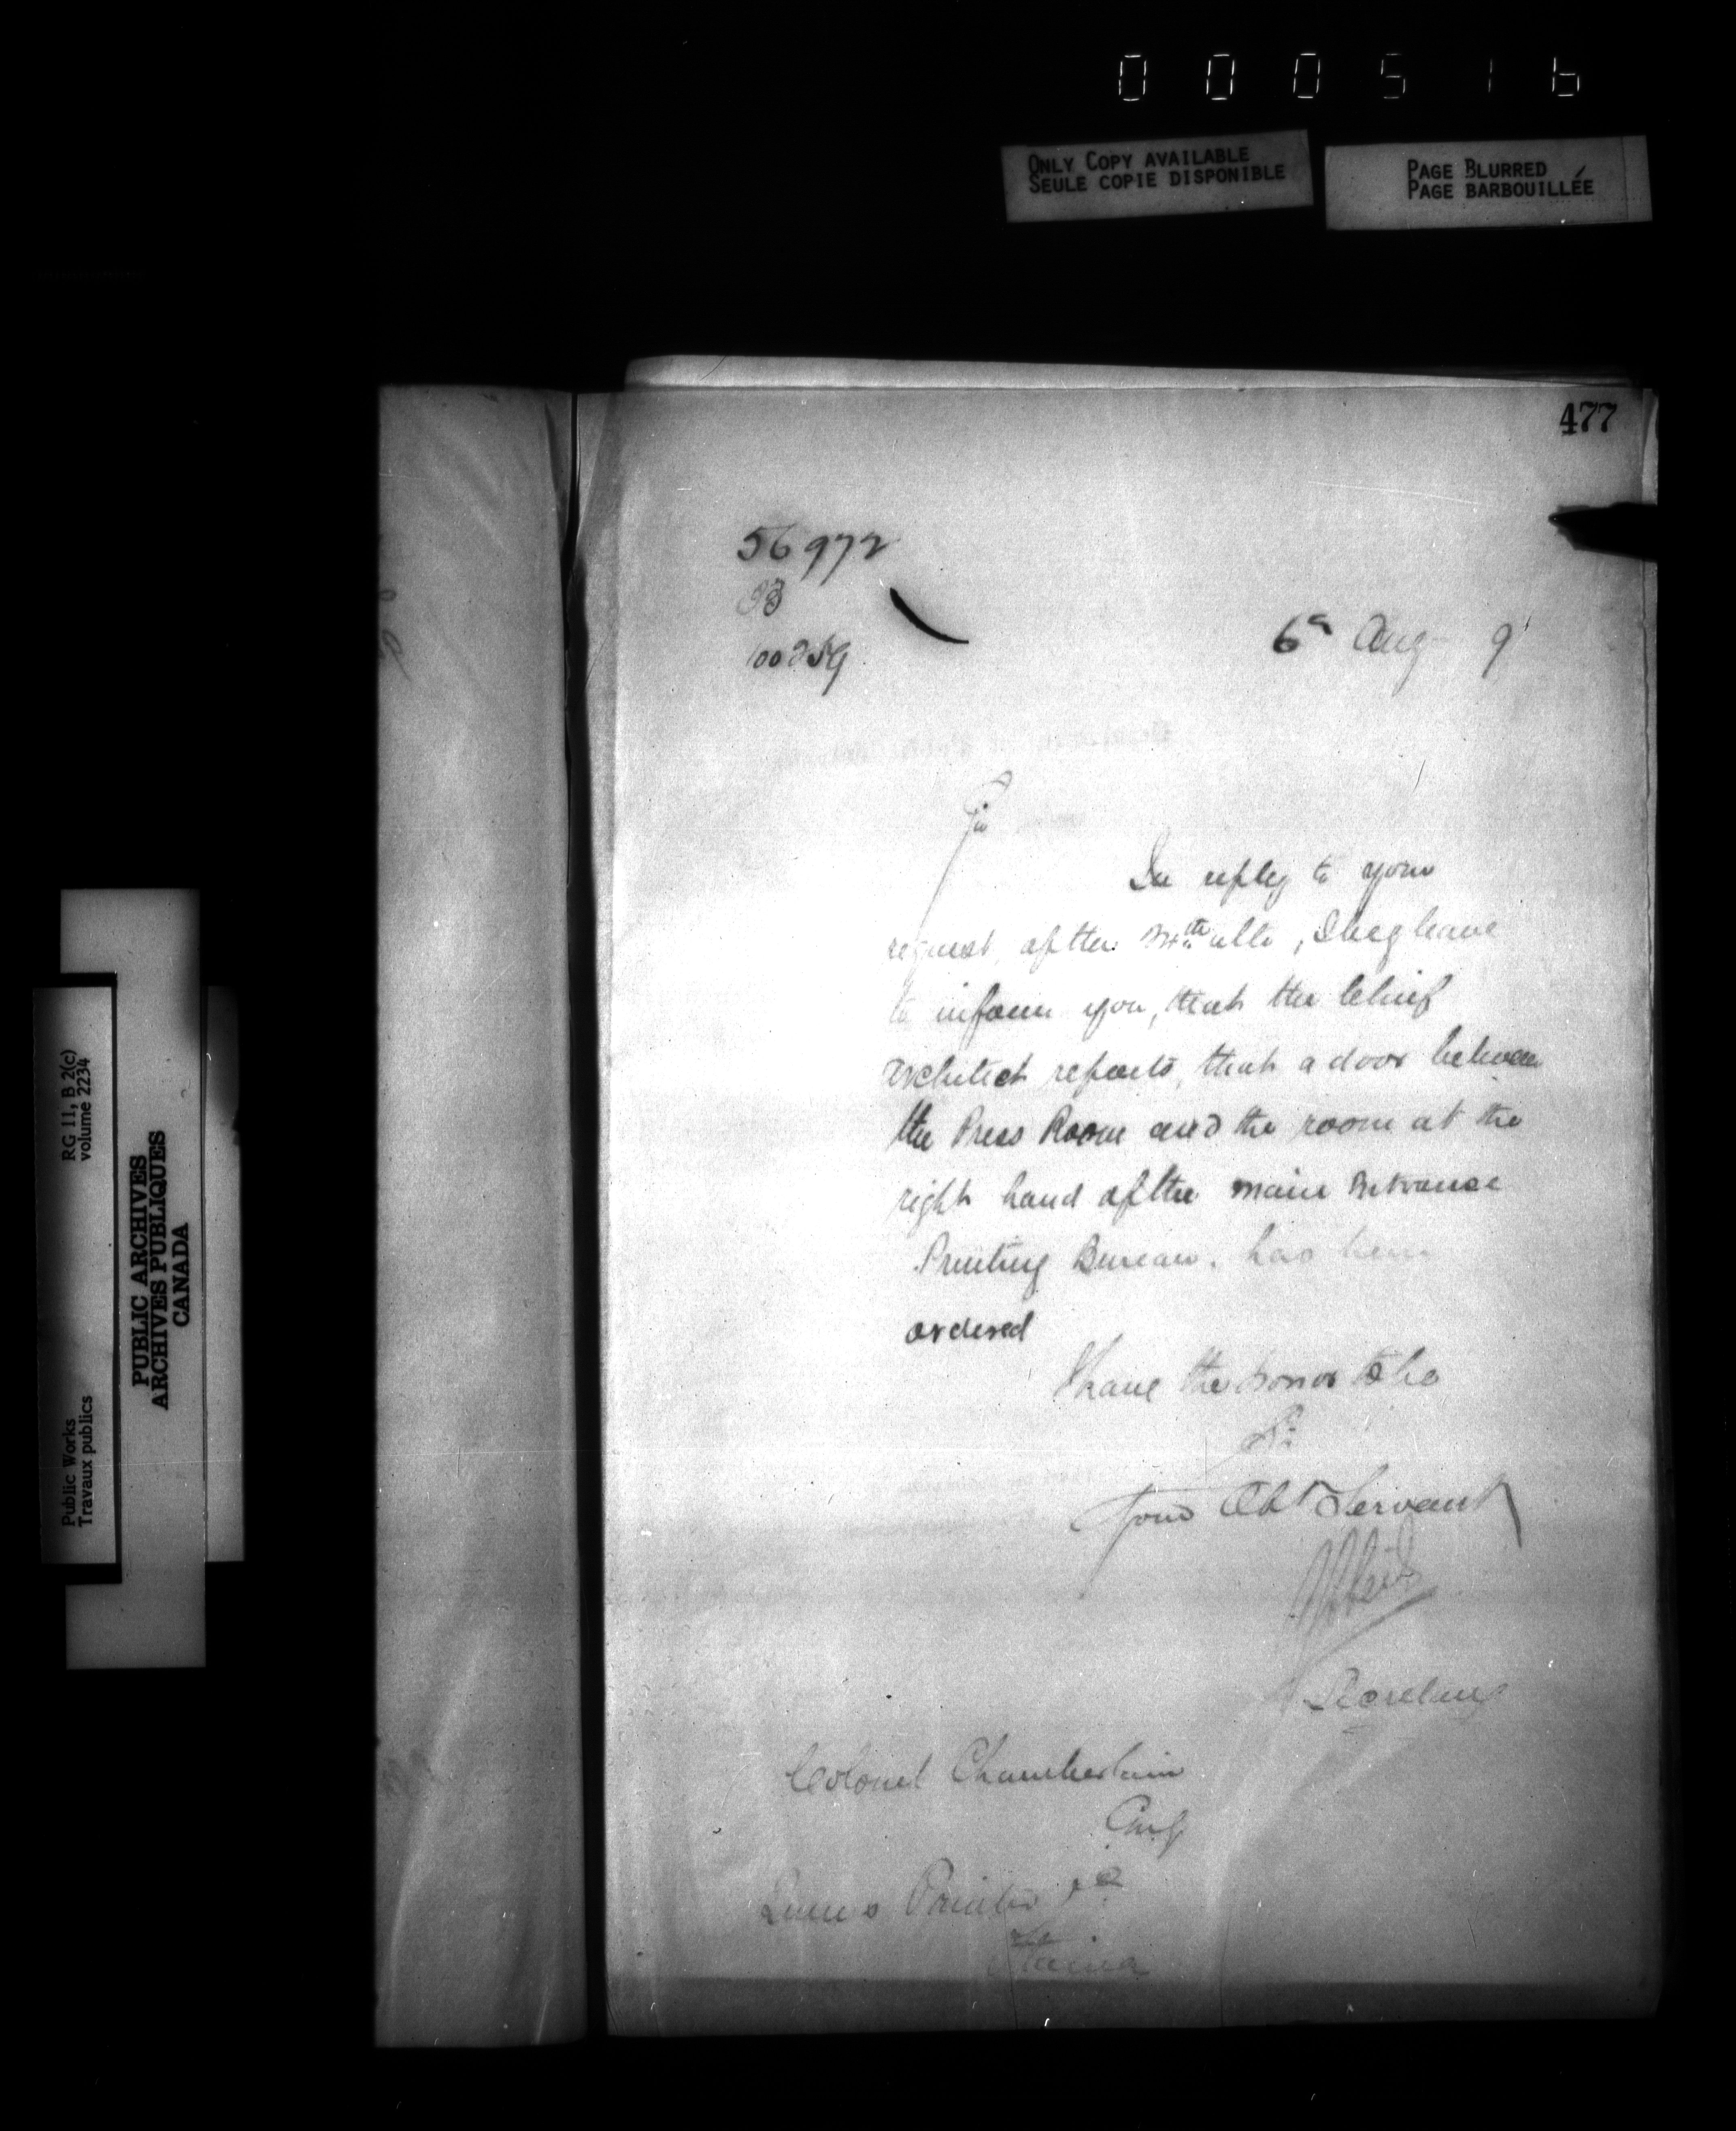 000516
ONLY COPY AVAILABLE
SEULE COPIE DISPONIBLE
PAGE BLURRED
PAGE BARBOUILLÉE
477
56972
100259
6th Aug 91
Sir
In reply to your
request of the ulto, I beg leave
to inform you, that the Chief
Architect reports, that a door between
the Press Room and the room at the
right hand of the main Entrance
Printing Bureau. has been
ordered
I have the honor to be
Sir
Your Obt Servant
Secretary
Colonel Chamberlain
Queens Printer &c
Ottawa
RG 11, B 2(c)
volume 2234
Public Works
Travaux publics
PUBLIC ARCHIVES
ARCHIVES PUBLIQUES
CANADA